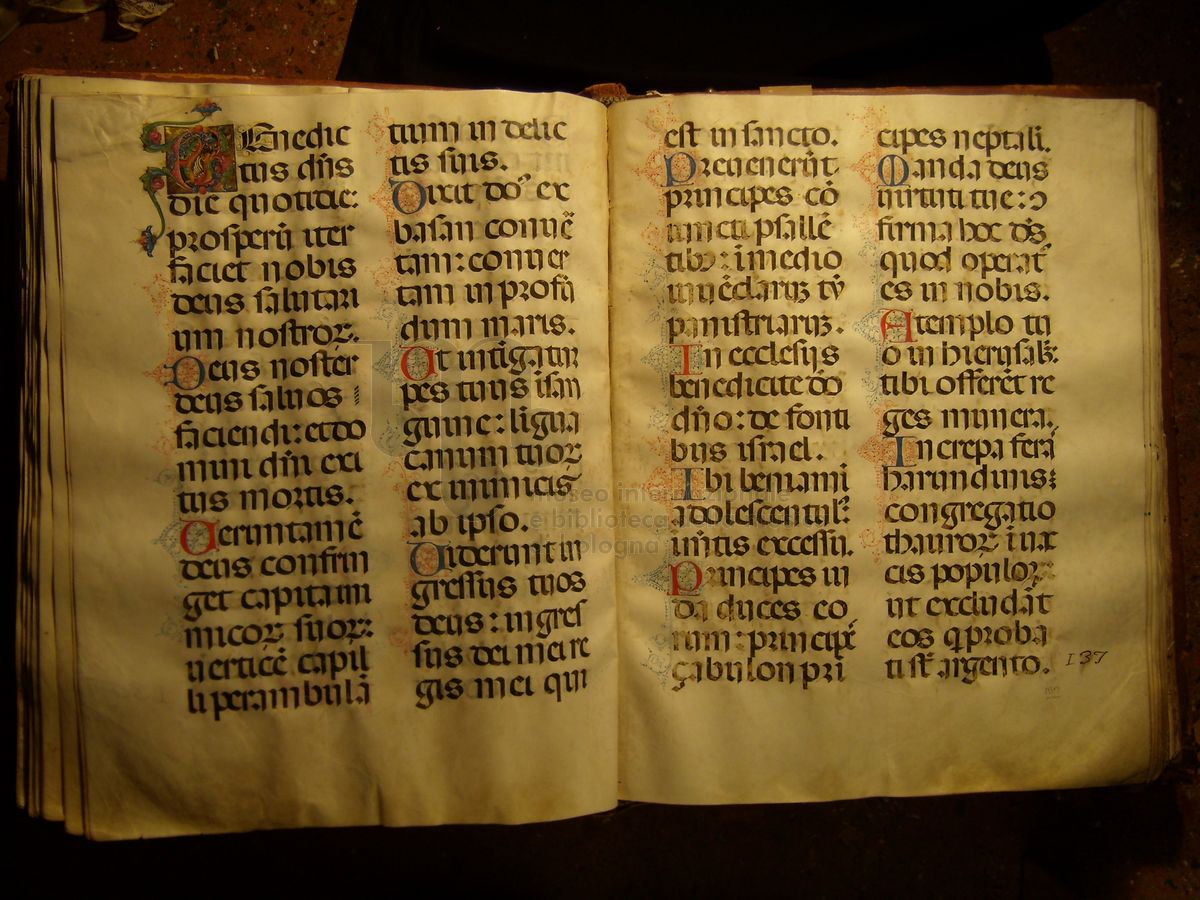 Benedic
tus dñs
die quotidie:
prosperũ iter
faciet nobis
deus salutari
um nostroꝝ.
Deus noster
deus saluos
faciendi: et do
mini dñi exi
tus mortis.
Ueruntamẽ
deus confrin
get capita ini
micoꝝ suoꝝ:
uerticẽ capil
li perambulã
tium in delic
tis suis.
Dixit doꝰ ex
basan conuẽ
tam: conuer
tam in profũ
dum maris.
Ut intĩgatur
pes tuus ĩ san
guine: lĩgua
canum tuoꝝ
ex inimicis
ab ipso.
Uiderunt in
gressus tuos
deus: ingres
sus dei mei re
gis mei qui
est in sancto.
Preuenerũt
principes cõ
iuncti psallẽ
tibꝰ: ĩ medio
iuuẽcłarũ tỹ
panistriarũ.
In ecclesiis
benedicite dõ
dño: de fonti
bus israel.
Ibi beniami
adolescentulꝰ:
ĩ mẽtis excessu.
Principes iu
da duces eo
rum: principẽ
çabulon prĩ
cipes neptali.
Manda deus
uirtuti tue: ꝯ
firma hoc dẽs
quod operat
es in nobis.
A templo tu
o in hierusalẽ:
tibi offerẽt re
ges munera.
Increpa ferã
harundinis:
congregatio
thauroꝝ ĩ uac
cis populoꝝ:
ut excludãt
eos q̃ proba
ti sũt argento.
137
museo internazionale
e biblioteca
di bologna